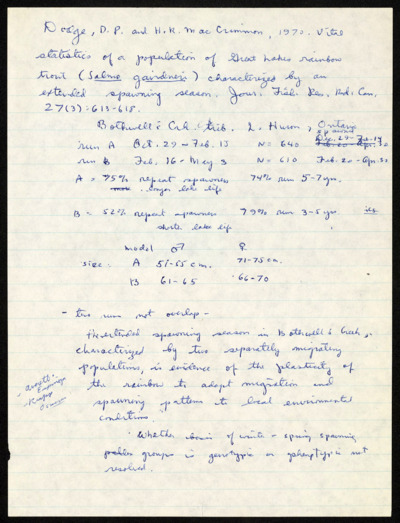 Dodge, D.P. and H.R. MacCrimmon, 1970. Vital
statistics of a population of Great Lakes rainbow
trout (Salmo gairdneri) characterized by an
extended spawning season. Jour. Fish. Res. Bd. Can.
27(3):613-618.
Bothwell's Crk. trib. L. Huron, Ontario
run A Oct. 29 - Feb. 13 N = 640 Dec. 29 - Feb. 19
run B Feb. 16 - May 3 N = 610 Feb. 20 - Apr. 30
A = 75% repeat spawners 74% run 5-7 yrs.
longer lake life
B = 52% repeat spawners 79% run 3-5 yrs.
shorter lake life
model ♂ ♀
size: A 51-55 cm. 71-75 cm.
B 61-65 66-70
- two runs not overlap -
The extended spawning season in Bothwell's Creek,
characterized by two separately migrating
populations, is evidence of the plasticity of
the rainbow to adapt migration and
spawning patterns to local environmental
conditions
Whether basis of winter - spring spawning
groups is genotypic or phenotypic is not
resolved.